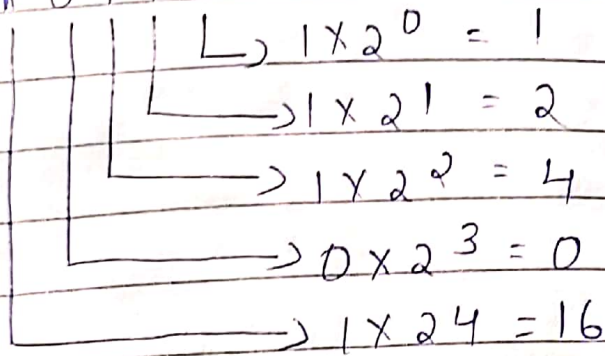 1 × 2⁰ = 1
1 × 2¹ = 2
1 × 2² = 4
0 × 2³ = 0
1 × 2⁴ = 16